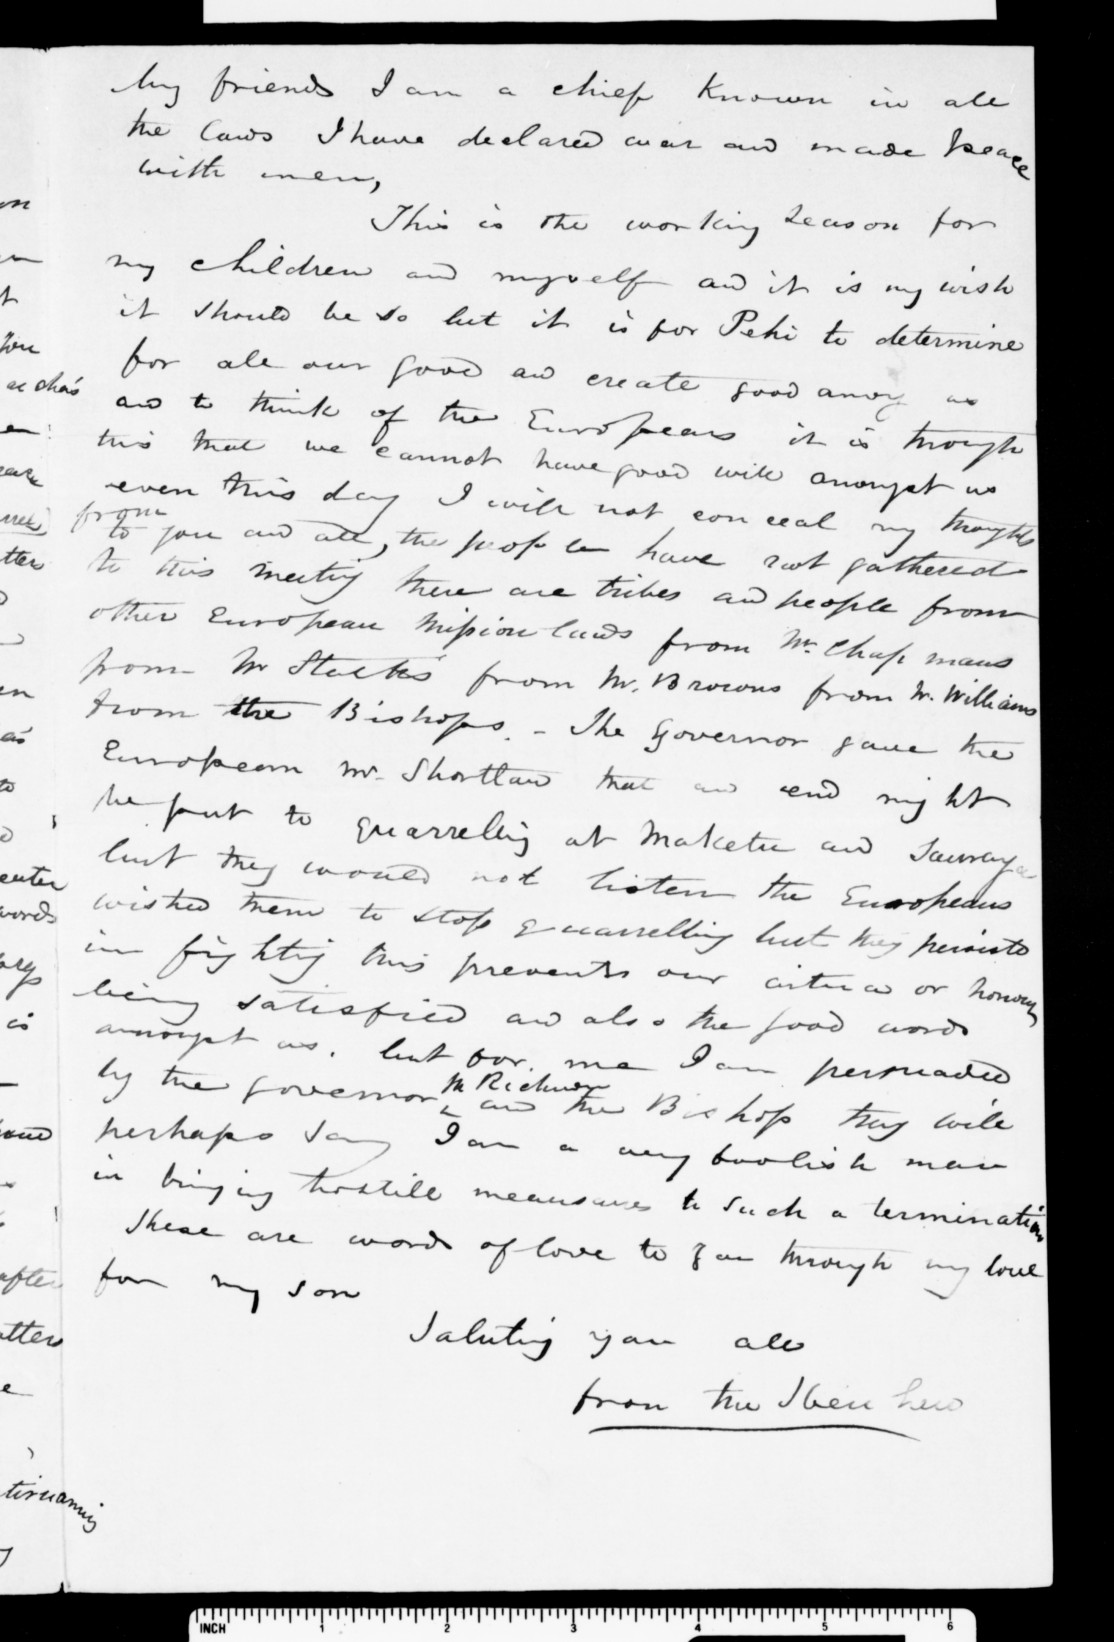 My friends I am a chief known in all
the laws I have declared war and made peace
with men,
This is the working season for
my children and myself and it is my wish
it should be so but it is for Pehi to determine
for all our good and create good among us
and to think of the Europeans it is through
this that we cannot have good will amongst us
even this day I will not conceal my thoughts
from
to you and all, the people have not gathered
to this meeting there are tribes and people from
other European Mission lands from Mr. Chapmans
from Mr Stacks from Mr. Browns from W. Williams
from the Bishops. - The Governor gave the
European Mr. Shortland that an end might
be put to quarrelling at Maketu and Tauranga
but they would not listen the Europeans
wished them to stop quarrelling but they persisted
in fighting this prevents our or honour
being satisfied and also the good words
amongst us. but for me I am persuaded
Mr Richmond
by the governor and the Bishop they will
perhaps say I am a very foolish man
in bringing hostile measures to such a termination
These are words of love to you through my love
for my son
Saluting you all
from the
on
you
as
to
words
is
after
e